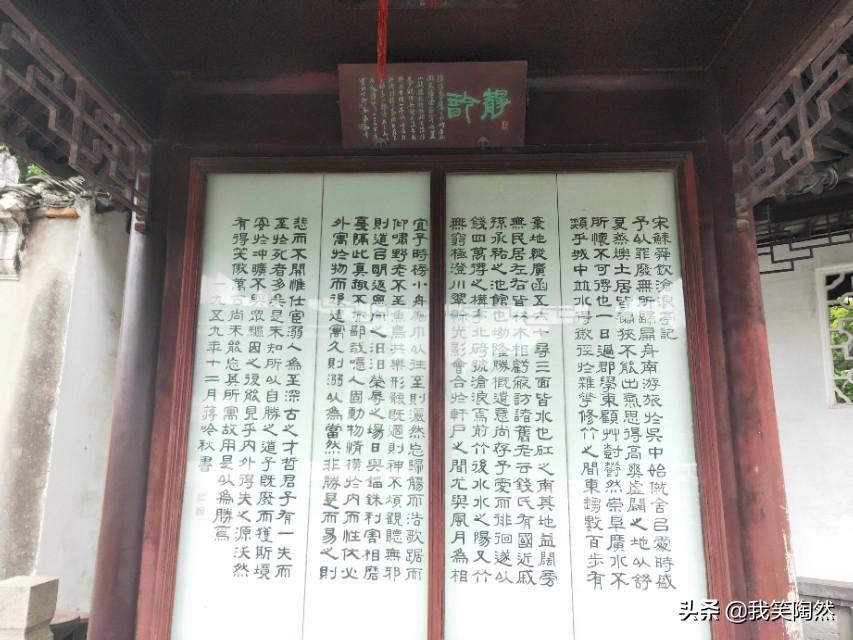 靜吟
宋蘇舜欽滄浪亭記
予以罪廢無所歸扁舟南游旅於吳中始僦舍以處時盛
夏蒸燠土居皆褊狹不能出氣思得高爽虛闢之地以舒
所懷不可得也一日過郡學東顧艸樹鬱然崇阜廣水不
類乎城中並水得微徑於雜華修竹之間東趨數百步有
棄地縱廣函五六十尋三面皆水也杠之南其地益闊旁
無民居左右皆林木相虧蔽訪諸舊老云錢氏有國近戚
孫承祐之池館也坳隆勝概遺意尚存予愛而徘徊遂以
錢四萬得之構亭北碕號滄浪焉前竹後水水之陽又竹
無窮極澄川翠榦光影會合於軒戶之間尤與風月為相
宜予時榜小舟幅巾以往至則灑然忘歸觴而浩歌踞而
仰嘯野老不至魚鳥共樂形骸既適則神不煩觀聽無邪
則道以明返思向之汩汩榮辱之場日與錙銖利害相磨
戛隔此真趣不亦鄙哉噫人固動物情橫於內而性伏必
外寓於物而後遣寓久則溺以為當然非勝是而易之則
悲而不開惟仕宦溺人為至深古之才哲君子有一失而
至於死者多矣是未知所以自勝之道予既廢而獲斯境
安於沖曠不與眾驅因之復能見乎內外得失之源沃然
有得笑傲萬古尚未能忘其所寓故用是以為勝焉
一九五九年十二月蔣吟秋書
头条 @我笑陶然